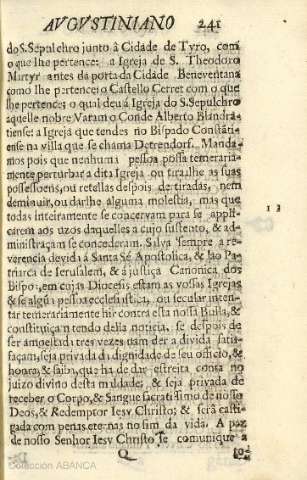 AVGVSTINIANO 241
do S. Sepulchro junto à Cidade de Tyro, com
o que lhe pertence: a Igreja de S. Theodoro
Martyr antes da porta da Cidade Beneventana
como lhe pertence: o Castello Cerret com o que
lhe pertence: o qual deu à Igreja do S. Sepulchro
aquelle nobre Varam o Conde Alberto Blandra-
tiense: a Igreja que tendes no Bispado Constãti-
ense na villa que se chama Detrendorf. Manda-
mos pois que nenhuma pessoa possa temeraria-
mente perturbar a dita Igreja ou tirarlhe as suas
possessoens, ou retellas despois de tiradas, nem
deminuir, ou darlhe alguma molestia, mas que
todas inteiramente se concervam para se appli-
carem aos uzos daquelles a cujo sustento, & ad-
ministraçam se concederam. Salva sempre a re-
verencia devida à Santa Sè Apostolica, & ao Pa-
triarca de Ierusalem, & á justiça Canonica dos
Bispos, em cujas Diocesis estam as vossas Igrejas
& se algũa pessoa ecclesiastica, ou secular inten-
tar temerariamente hir contra esta nossa Bulla, &
constituiçam tendo della noticia, se despois de
ser amoestada tres vezes nam der a divida satis-
façam, seja privada da dignidade de seu officio, &
honra, & saiba, que ha de dar estreita conta no
juizo divino desta maldade, & seja privada de
receber o Corpo, & Sangue sacratissimo de nosso
Deos, & Redemptor Iesv Christo: & serà casti-
gada com penas eternas no fim da vida. A paz
de nosso Senhor Iesv Christo se comunique a
Q
13
Colección ABANCA